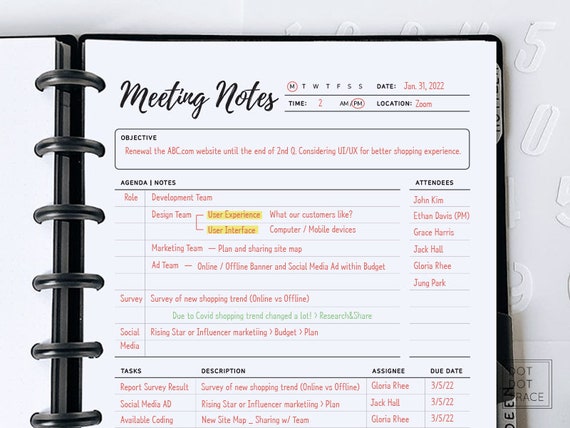 Meeting Notes
M T W T F S S DATE: Jan. 31, 2022
TIME: 2 AM/PM LOCATION: Zoom
OBJECTIVE
Renewal the ABC.com website until the end of 2nd Q. Considering UI/UX for better shopping experience.
AGENDA | NOTES ATTENDEES
Role Development Team John Kim
Design Team User Experience What our customers like? Ethan Davis (PM)
User Interface Computer / Mobile devices Grace Harris
Marketing Team — Plan and sharing site map Jack Hall
Ad Team — Online / Offline Banner and Social Media Ad within Budget Gloria Rhee
Jung Park
Survey Survey of new shopping trend (Online vs Offline)
Due to Covid shopping trend changed a lot! > Research&Share
Social Media Rising Star or Influencer marketiing > Budget > Plan
TASKS DESCRIPTION ASSIGNEE DUE DATE
Report Survey Result Survey of new shopping trend (Online vs Offline) Gloria Rhee 3/5/22
Social Media AD Rising Star or Influencer marketiing > Plan Jack Hall 3/5/22
Available Coding New Site Map _ Sharing w/ Team Gloria Rhee 3/5/22
DOT
DOT
GRACE